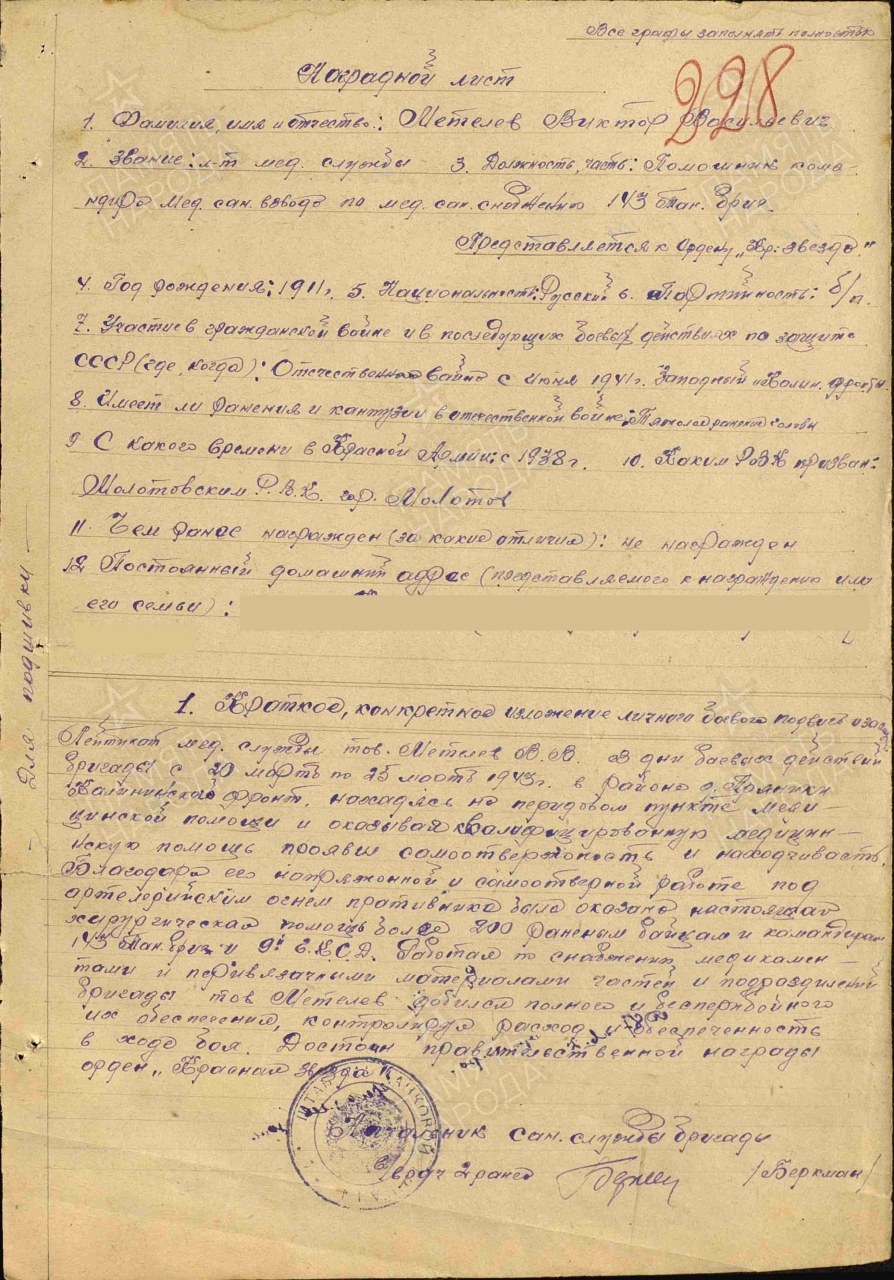 Все графы заполнять полностью
228
Наградной лист
1. Фамилия, имя и отчество: Метелев Виктор Васильевич
2. Звание: л-т мед. службы 3. Должность, часть: Помошник кома-
ндира мед. сан. взвода по мед. сан. снабжению 143 Тан. Бриг.
Представляется к Ордену "Кр. звезда."
4. Год рождения: 1911г. 5. Национальность: Русский 6. Партийность: б/п.
7. Участие в гражданской войне и в последующих боевых действиях по защите
СССР (где, когда): Отечественная война с июня 1941г. Западный и Калин. фронты
8. Имеет ли ранения и кантузии в отечественной войне: ранение головы
9. С какого времени в Красной Армии: с 1938г. 10. Каким РВК призван:
Молотовским Р.В.К. гор. Молотов
11. Чем ранее награжден (за какие отличия): не награжден
12. Постоянный домашний адрес (представляемого к награждению или
его семьи):
Для подшивки
1. Краткое, конкретное изложение личного боевого подвига
Лейтинат мед. службы тов. Метелев В.В. в дни боевых действий
бригады с 20 марта по 25 марта 1943г. в районе д. Пряники
Калининского фронт. находясь на передовом пункте меди-
цинской помощи и оказывая квалифицированную медицин-
нскую помощь проявил самоотверженость и находчивасть.
Благодаря его напряжонной и самоотверной работе под
артелерийским огнем пративника была оказана настоящая
хирургическая помощь более 200 раненым байцам и командирам
143 Тан. Бриг. и 9й С.К.С.Д. Работая по снабжению медикамен-
тами и перивязачными материалами частей и подразделений
бригады тов Метелев добился полного и бесперибойного
их обеспечения, контролируя расход и обеспреченность
в ходе боя. Достоин правительственной награды
орден "Красная звезда"
Начальник сан. службы бригады
врач 2 ранга /Беркман/
ШТАБ ТАНКОВОЙ
ПАМЯТЬ НАРОДА